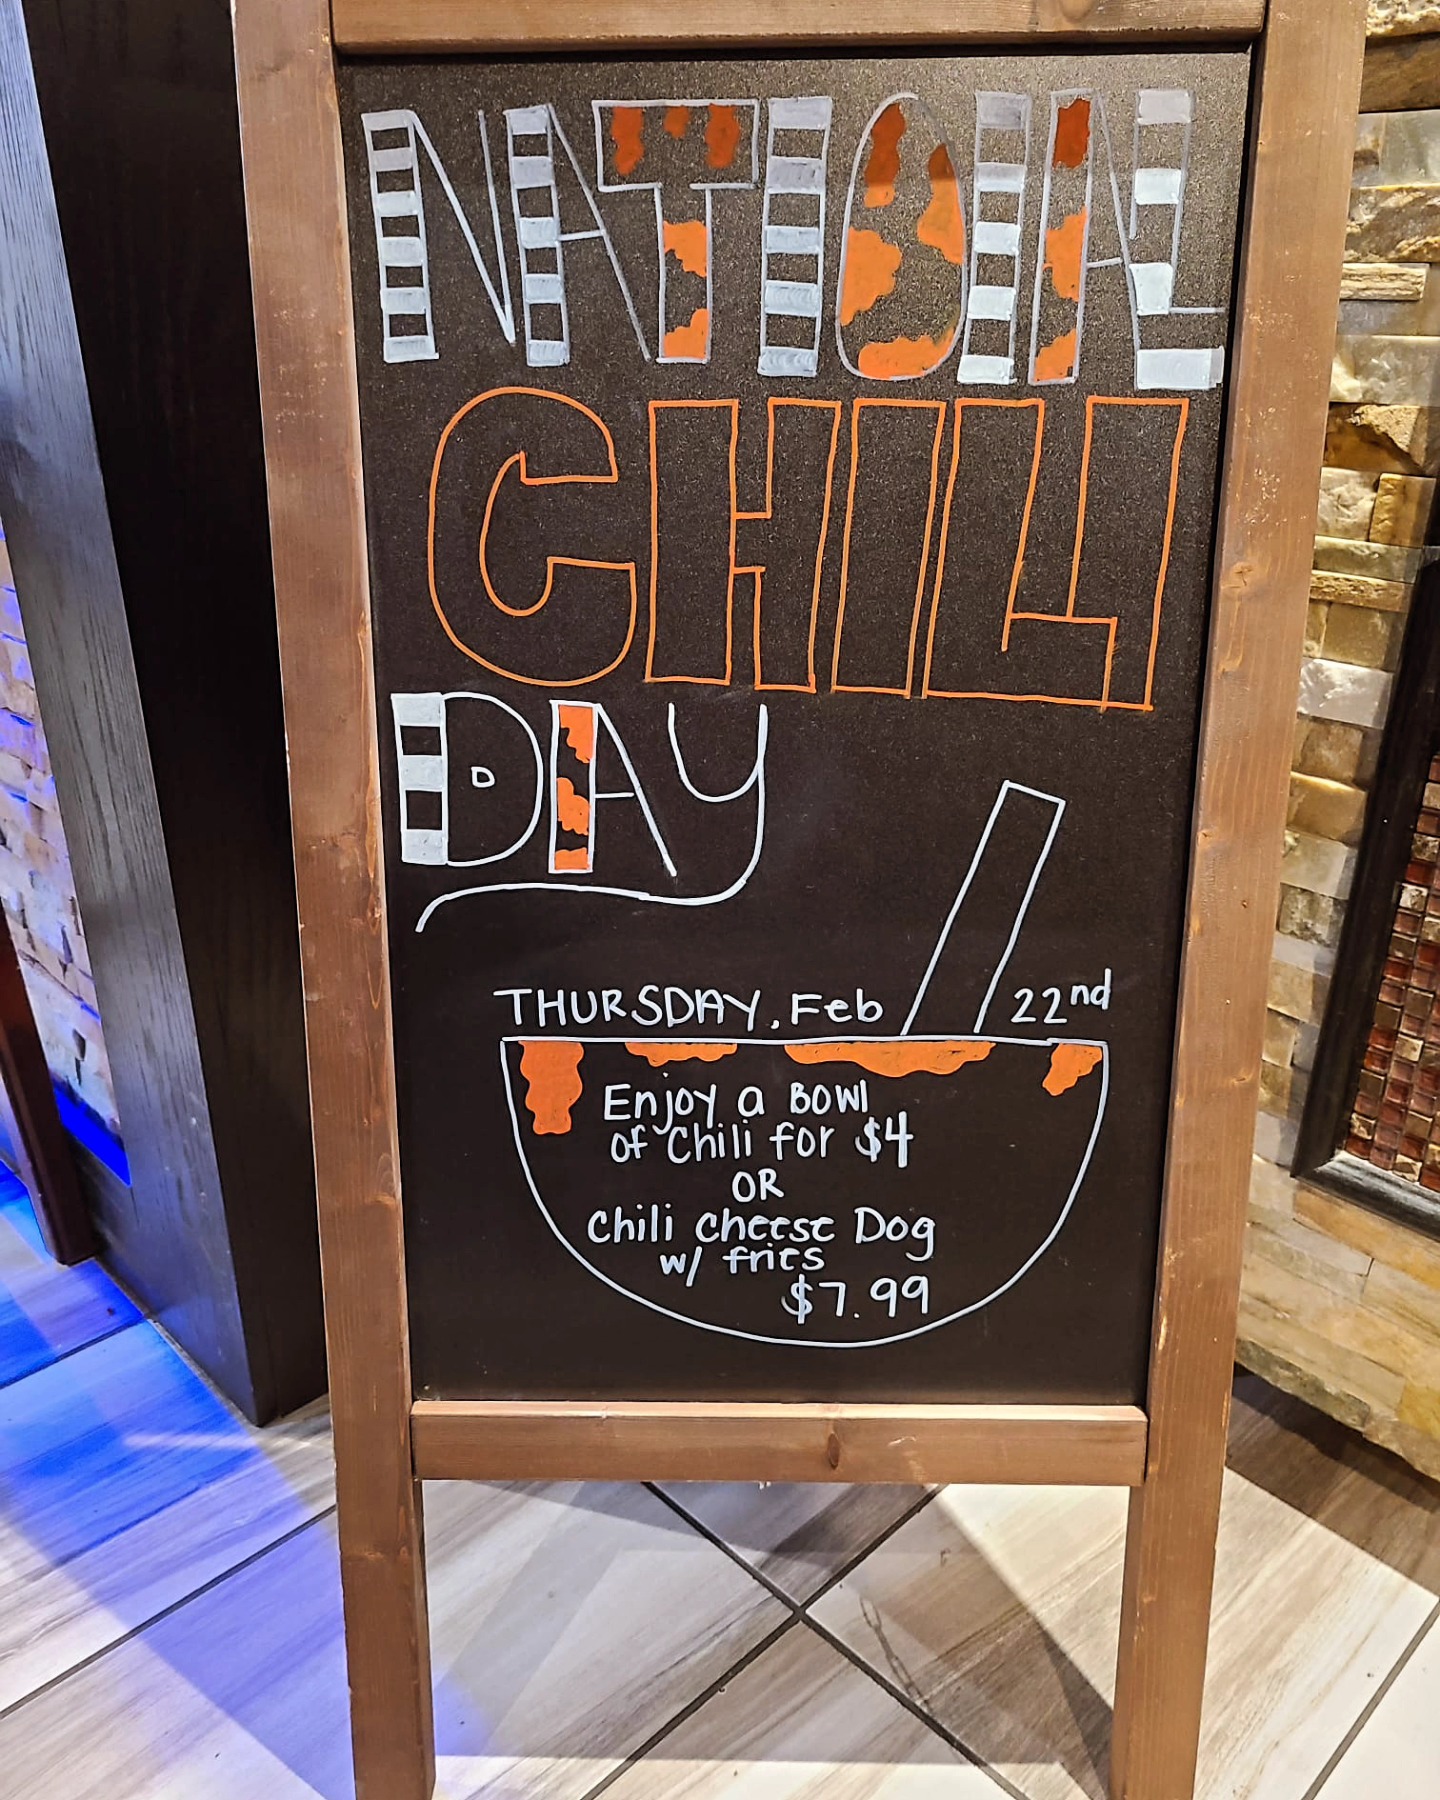 NATIONAL
CHILI
DAY
THURSDAY, Feb 22nd
Enjoy a Bowl
of Chili for $4
OR
Chili cheese Dog
w/ fries
$7.99